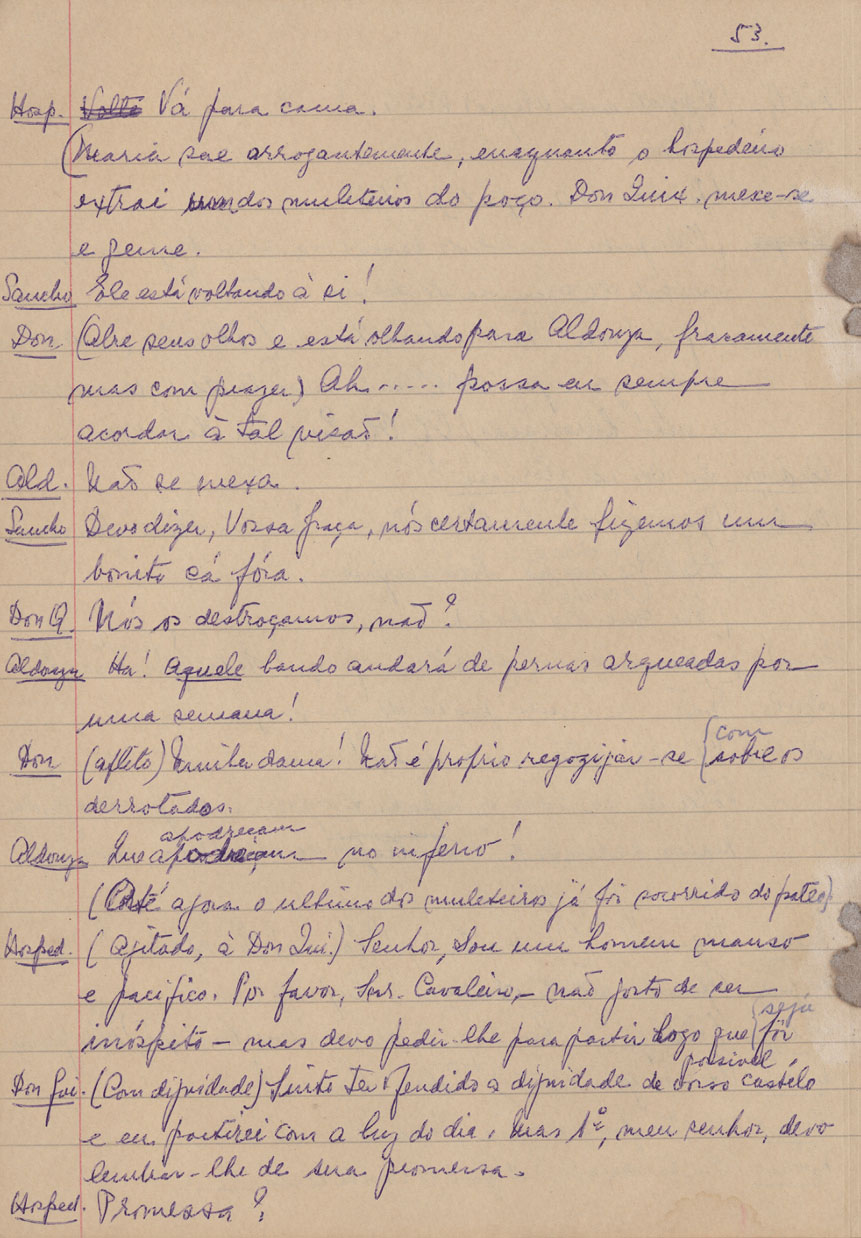 53.
Hosp. Volte Vá para cama.
(Maria sae arrogantemente, enquanto o hospedeiro
extrai um dos muleteiros do poço. Don Quix. mexe-se
e geme.
Sancho Ele está voltando à si!
Don (Abre seus olhos e está olhando para Aldonza, fracamente
mas com prazer) Ah..... possa eu sempre
acordar à tal visão!
Ald. Não se mexa.
Sancho Devo dizer, Vossa Graça, nós certamente fizemos um
bonito cá fóra.
Don Q. Nós os destroçamos, não?
Aldonza Ha! Aquele bando andará de pernas arqueadas por
uma semana!
Don (aflito) Minha dama! Não é proprio regozijar-se {sobre os
com
derrotados.
apodreçam
Aldonza Que apodreçam no inferno!
(Até agora o ultimo dos muleteiros já foi socorrido do pateo)
Hosped. (Agitado, à Don Qui.) Senhor, Sou um homem manso
e pacífico. Por favor, Snr. Cavaleiro, – não gosto de ser
seja
inóspito – mas devo pedir-lhe para partir logo que {fôr
possivel
Don Qui. (Com dignidade) Sinto ter ofendido a dignidade de vosso castélo
e eu partirei com a luz do dia. Mas 1º, meu senhor, devo
lembrar-lhe de sua promessa.
Hosped. Promessa?